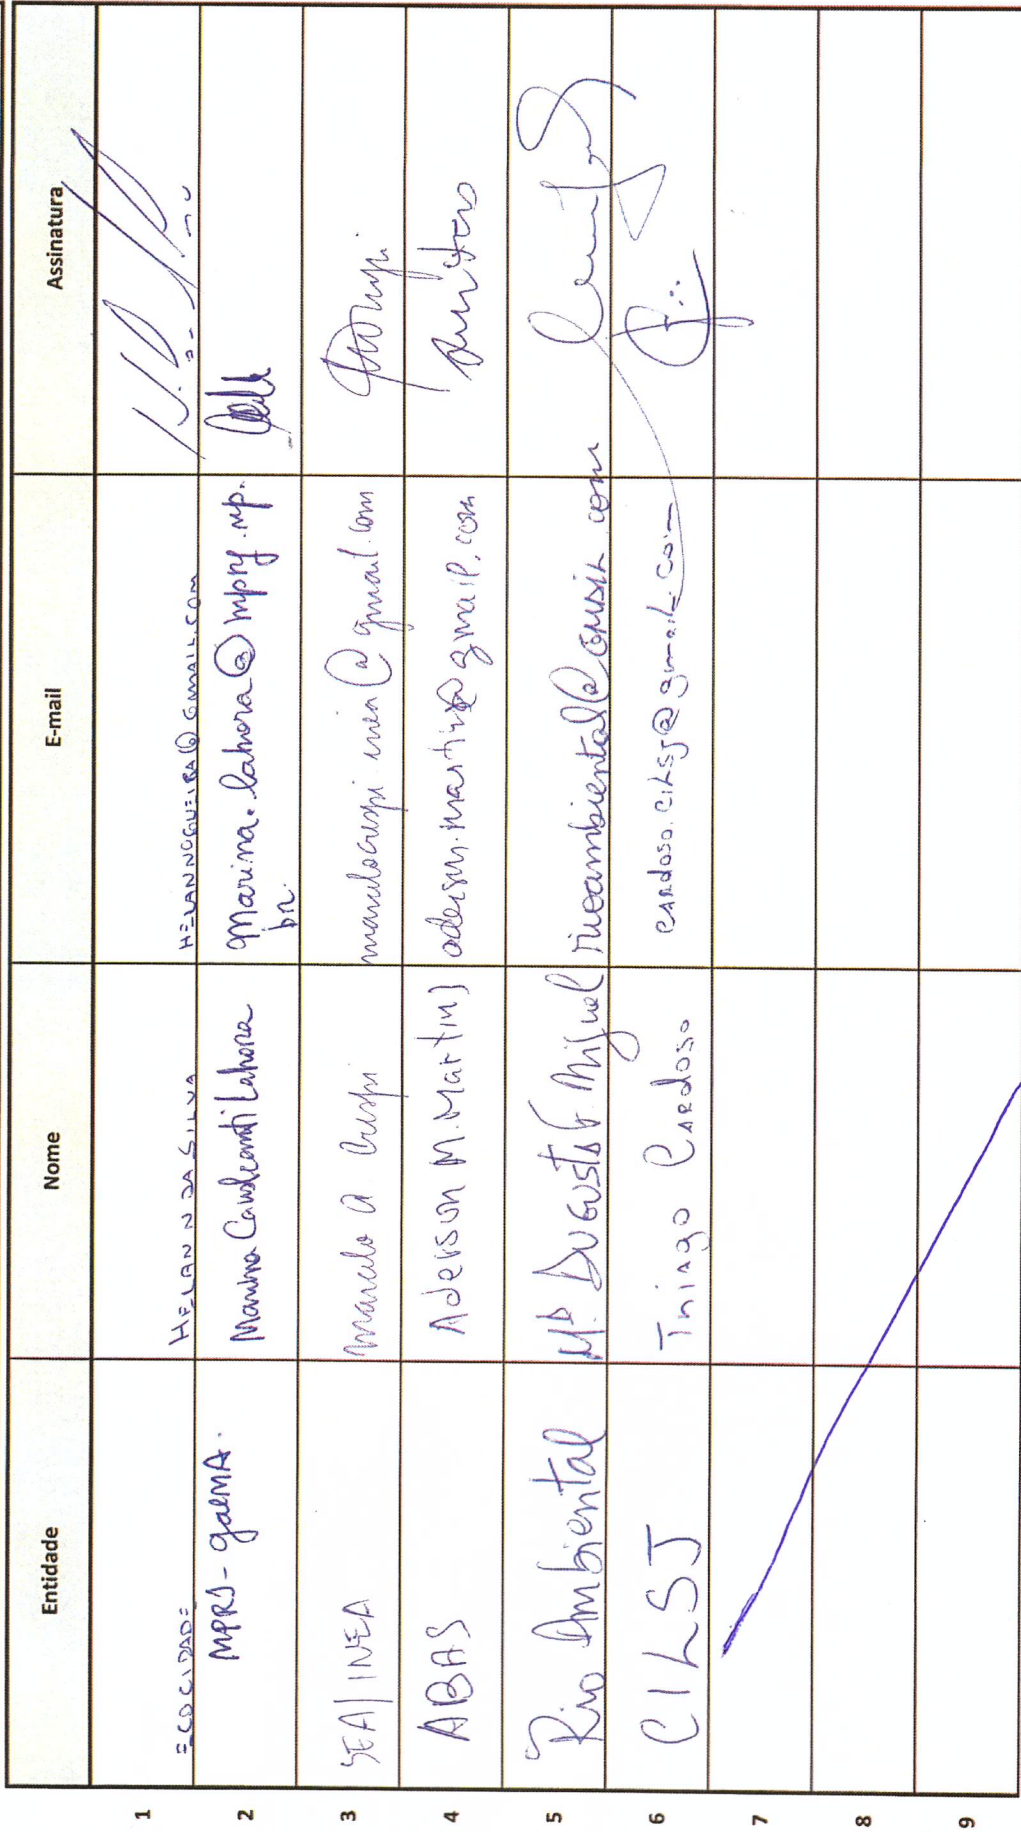 Entidade Nome E-mail Assinatura
1 ECOCIDADE HELAN N DA SILVA HELANNOGUEIRA@GMAIL.COM
2 MPRJ - gaema. Marina Cavalcanti Lahora marina.lahora@mprj.mp.
br.
3 SEA/INEA marcelo a crespi gmail.com
4 ABAS Aderson M. Martins aderson.martins@gmail.com
5 Rio Ambiental Mª Augusta F. Miguel rioambiental@ .com
6 CILSJ Thiago Cardoso cardoso.cilsj@gmail.com
7
8
9